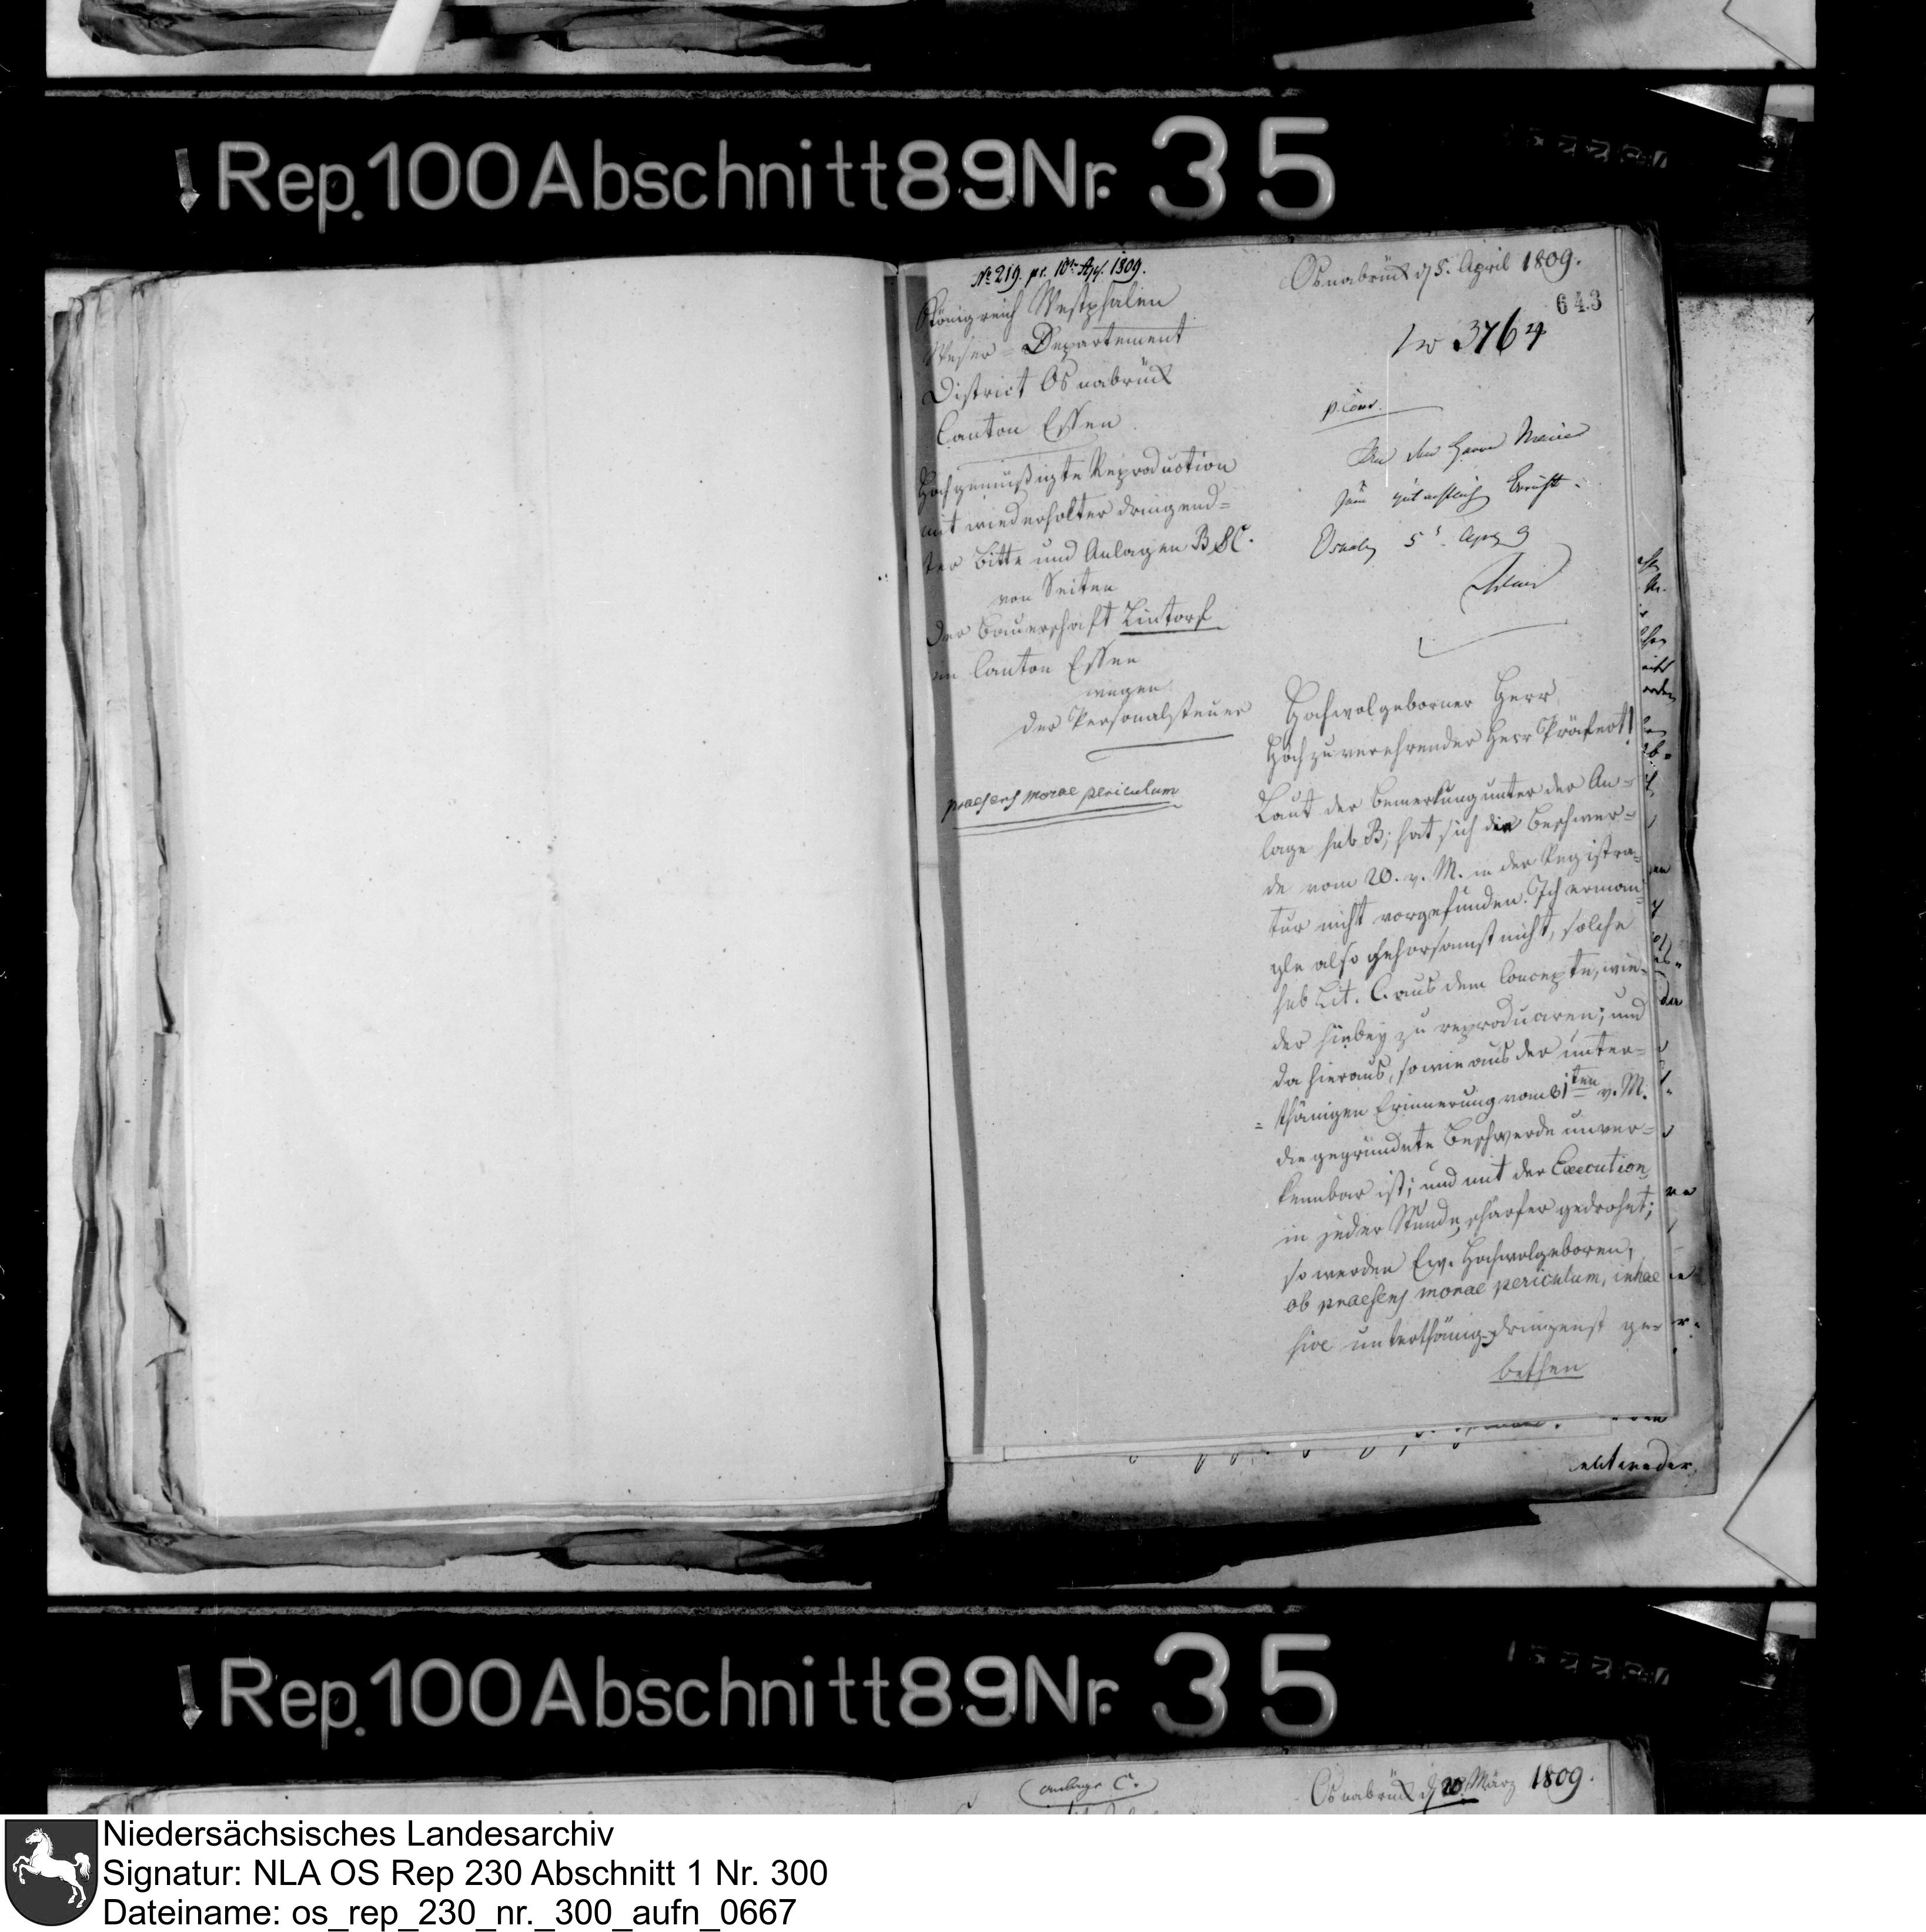 Rep. 100 Abschnitt 89 Nr. 35
No 219. pr. 10t Apr. 1809.
Königreich Westphalen
Weser-Departement
District Osnabrück
Canton Essen
Hochgemüßigte Reproduction
mit wiederholter dringend=
ster Bitte und Anlagen B & C.
von Seiten
der Bauerschaft Lintorf
im Canton Essen
wegen
der Personalsteuer
praesens morae periculum
Osnabrück d 5. April 1809.
643
3764
An den Herrn Maire
zum gutachtlich Bericht.
Osnabr 5t Apr 9
Hochwolgeborner Herr,
Hochzuverehrender Herr Präfect!
Laut der Bemerkung unter der An=
lage sub B; hat sich die Beschwer=
de vom 20. v. M. in der Registra=
tur nicht vorgefunden. Ich erman=
gle also gehorsamst nicht, solche
sub Lit. C. aus dem Concepte, wie=
der hiebey zu reproduciren; und
da hieraus, so wie aus der unter=
thänigen Erinnerung vom 31ten v. M.
die gegründete Beschwerde unver=
kennbar ist; und mit der Execution
in jeder Stunde schärfer gedrohet;
so werden Ew. Hochwolgeboren,
ob praesens morae periculum, inhae
sive unterthänig-dringenst ge=
bethen
entweder
Rep. 100 Abschnitt 89 Nr. 35
Anlage C.
Osnabrück d 20 März 1809.
Niedersächsisches Landesarchiv
Signatur: NLA OS Rep 230 Abschnitt 1 Nr. 300
Dateiname: os_rep_230_nr._300_aufn_0667